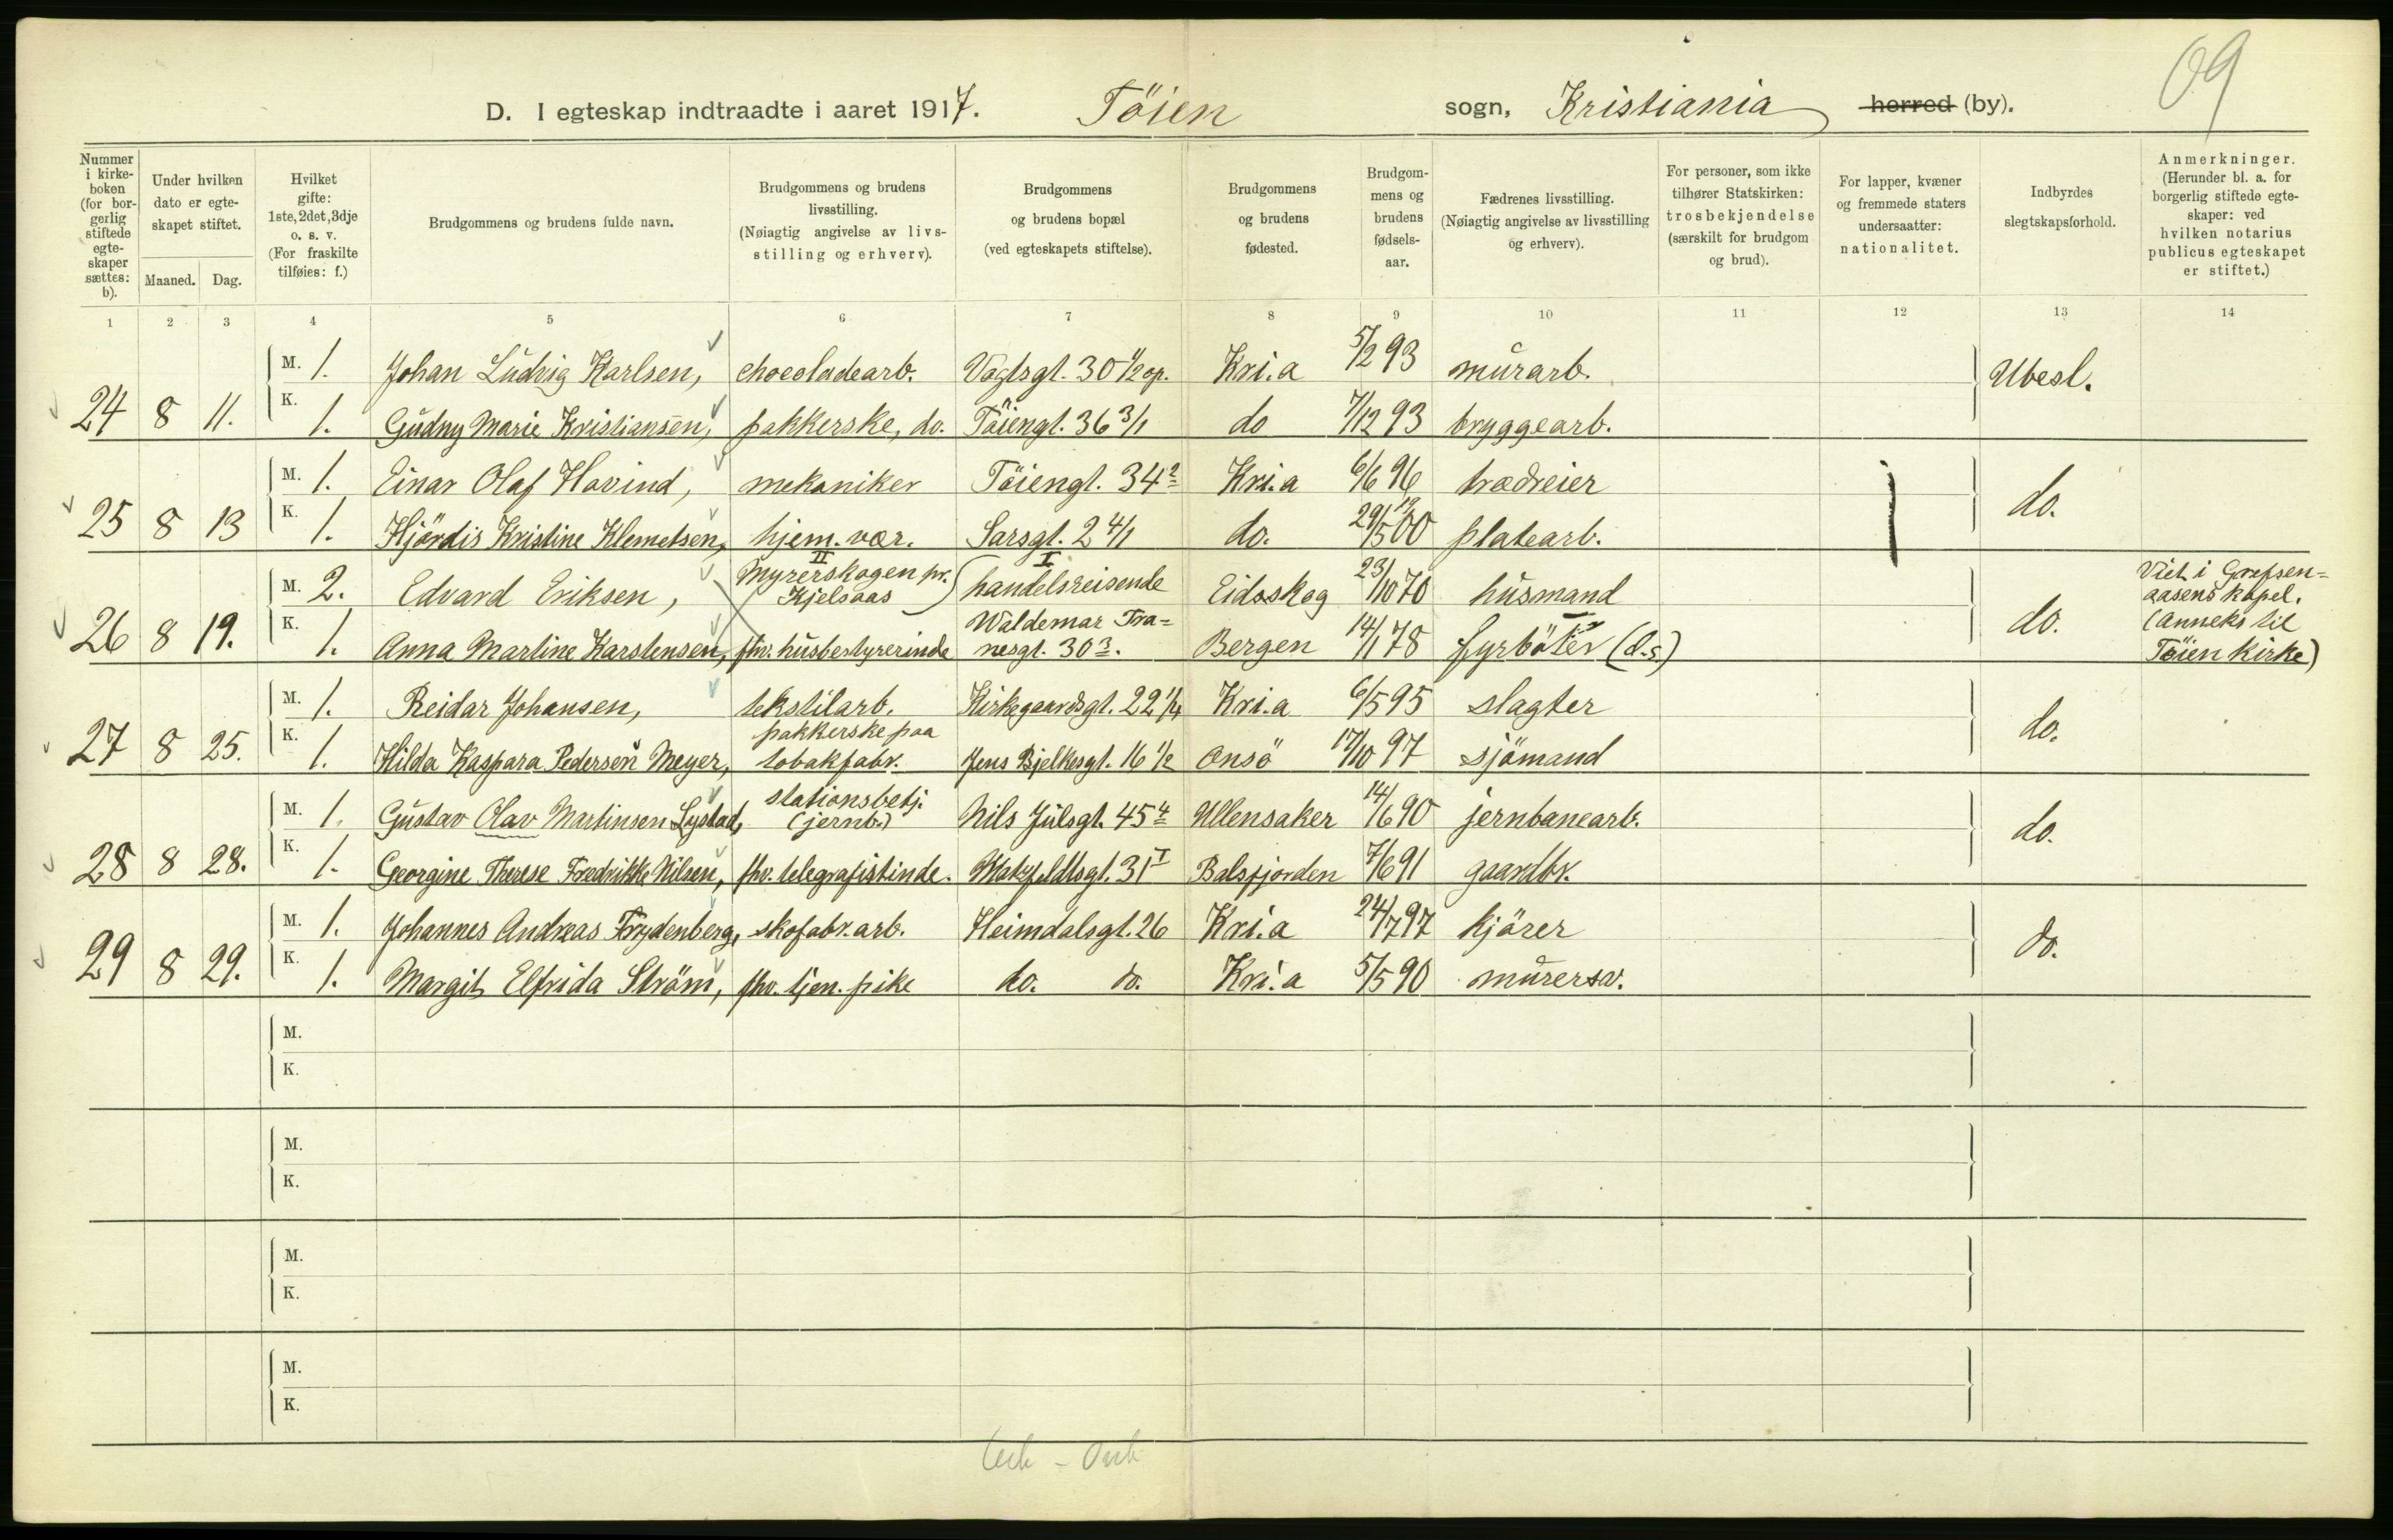 09
D. I egteskap indtraadte i aaret 1917. Töien sogn, Kristiania herred (by).
Nummer i kirke-boken (for bor-gerlig stiftede egte-skaper sættes: b).
Under hvilken dato er egte-skapet stiftet.
Maaned. Dag.
Hvilket gifte: 1ste, 2det, 3dje o. s. v. (For fraskilte tilføies: f.)
Brudgommens og brudens fulde navn.
Brudgommens og brudens livsstilling. (Nøiagtig angivelse av livs-stilling og erhverv).
Brudgommens og brudens bopæl (ved egteskapets stiftelse).
Brudgommens og brudens fødested.
Brudgom-mens og brudens fødsels-aar.
Fædrenes livsstilling. (Nøiagtig angivelse av livsstilling og erhverv).
For personer, som ikke tilhører Statskirken: trosbekjendelse (særskilt for brudgom og brud).
For lapper, kvæner og fremmede staters undersaatter: nationalitet.
Indbyrdes slegtskapsforhold.
Anmerkninger. (Herunder bl. a. for borgerlig stiftede egte-skaper: ved hvilken notarius publicus egteskapet er stiftet.)
1 2 3 4 5 6 7 8 9 10 11 12 13 14
M. 1. Johan Ludvig Karlsen, chocoladearb. Vogtsgt. 30 1/2 op. Kri.a 5/2 93 murarb. Ubesl.
24 8 11. K. 1. Gudny Marie Kristiansen, pakkerske, do. Töiengt. 36 3/1 do 7/12 93 bryggearb.
M. 1. Einar Olaf Hovind, mekaniker Töiengt. 34 2 Kri.a 6/6 96 trædreier do.
25 8 13 K. 1. Hjördis Kristine Klemetsen, hjem. vær. Sarsgt. 2 4/1 do. 29/5 1900 platearb.
M. 2. Edvard Eriksen, II Myrerskogen pr. Kjelsaas) I handelsreisende Eidsskog 23/10 70 husmand do. Viet i Grefsen=
aasens kapel.
(Anneks til
Töien kirke)
26 8 19. K. 1. Anna Martine Karstensen, fhv. husbestyrerinde Waldemar Tra=
nesgt. 30 3. Bergen 14/1 78 fyrböter (d.s.)
M. 1. Reidar Johansen, tekstilarb. Kirkegaardsgt. 22 1/4 Kri.a 6/5 95 slagter do.
27 8 25. K. 1. Hilda Kaspara Pedersen Meyer, pakkerske paa
tobakfabr. Jens Bjelkesgt. 16 1/2 Onsö 17/10 97 sjömand
M. 1. Gustav Olav Martinsen Lystad, stationsbetj.
(jernb.) Nils Julsgt. 45 4 Ullensaker 14/6 90 jernbanearb. do.
28 8 28. K. 1. Georgine Therese Fredrikke Nilsen, fhv. telegrafistinde. Matzfeldtsgt. 31 I Balsfjorden 7/6 91 gaardbr.
M. 1. Johannes Andreas Frydenberg, skofabr. arb. Heimdalsgt. 26 Kri.a 24/7 97 kjörer do.
29 8 29. K. 1. Margit Elfrida Ström, fhv. tjen. pike do. do. Kri.a 5/5 90 murersv.
M.
K.
M.
K.
M.
K.
M.
K.